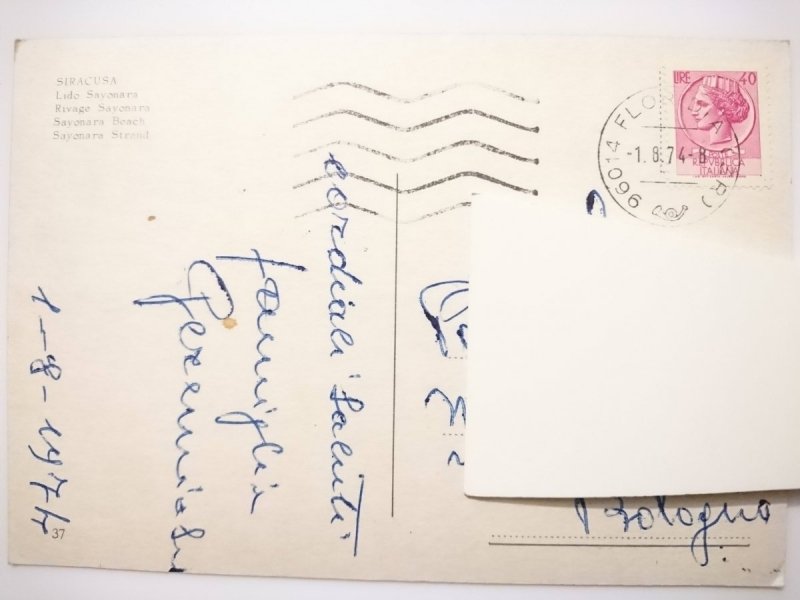 SIRACUSA
Lido Sayonara
Rivage Sayonara
Sayonara Beach
Sayonara Strand
LIRE 40
REPVBBLICA
ITALIANA
96014 FLO
-1.8.74-8
cordiali saluti
famiglia
1-8-1974
Bologna
37